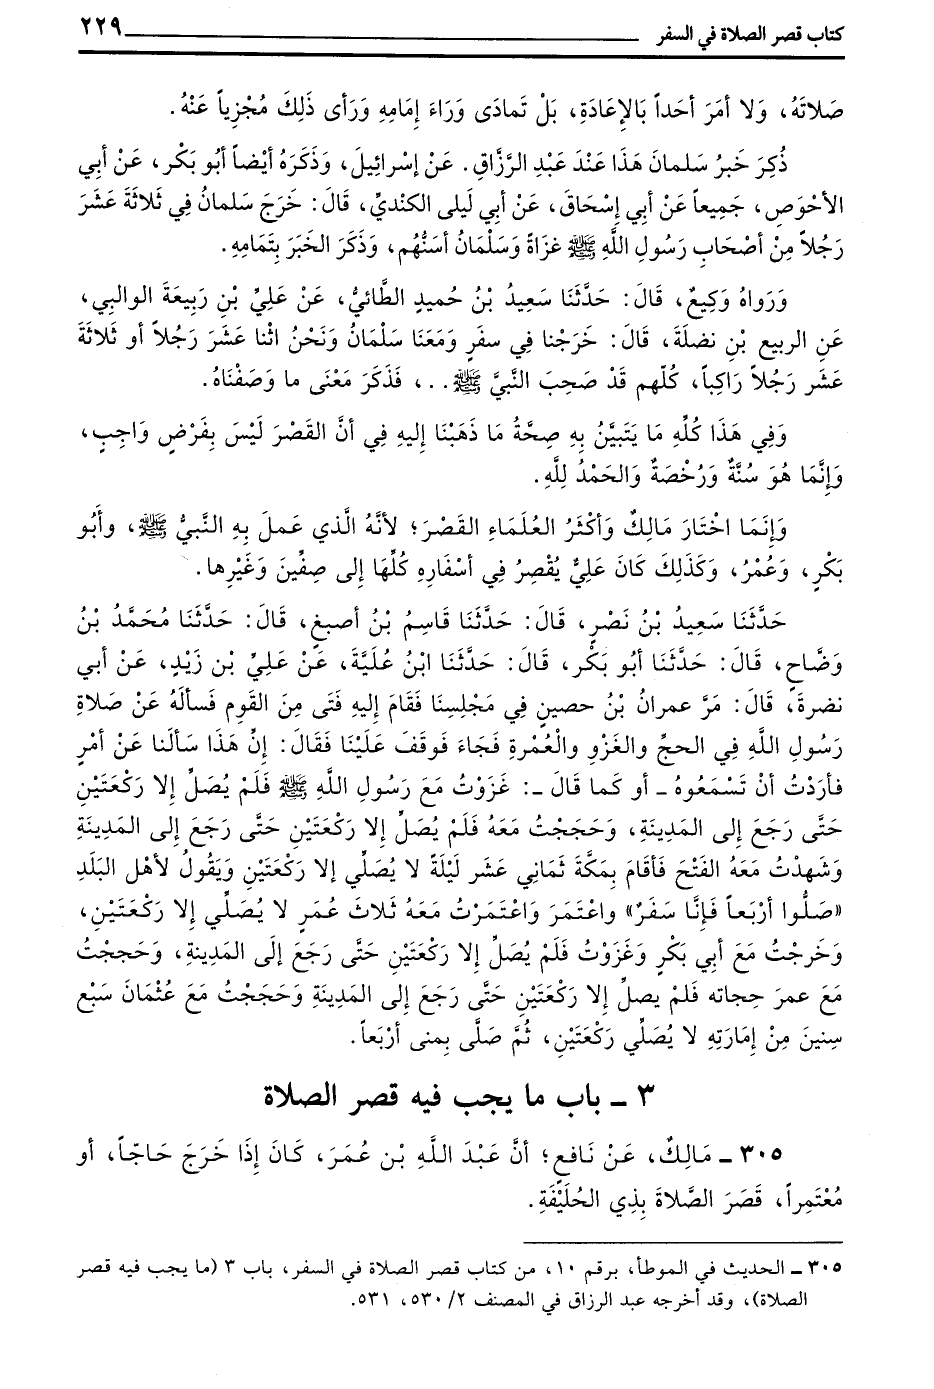 كتاب قصر الصلاة في السفر ٢٢٩
صَلاتَهُ، وَلا أمَرَ أحَداً بَالإِعَادَةِ، بَلْ تَمادَى وَرَاءَ إِمَامِهِ وَرَأى ذَلِكَ مُجْزِياً عَنْهُ.
ذُكِرَ خَبرُ سَلمانَ هَذَا عَنْدَ عَبْدِ الرَّزَّاقِ. عَنْ إسْرائِيلَ، وَذَكَرَهُ أيْضاً أبُو بَكْر، عَنْ أبي
الأحْوَصِ، جَمِيعاً عَنْ أبي إسْحَاقَ، عَنْ أبي لَيلى الكنْديِّ، قَالَ: خَرَجَ سَلمانُ فِي ثَلاثَةَ عَشَرَ
رَجُلاً مِنْ أصْحَابِ رَسُولِ اللَّهِ ﷺ غزَاةً وَسَلْمَانُ أسَنُّهُم، وَذَكَرَ الخَبَرَ بِتَمَامِهِ.
وَرَواهُ وَكِيعٌ، قَالَ: حَدَّثَنَا سَعِيدُ بْنُ حُميدٍ الطَّائيُّ، عَنْ عَلِيِّ بْنِ رَبِيعَةَ الوالبِي،
عَنِ الربيع بْنِ نضلَةَ، قَالَ: خَرَجْنا فِي سفَرٍ وَمَعَنَا سَلْمَانُ وَنَحْنُ اثْنا عَشَرَ رَجُلاً أو ثَلاثَةَ
عَشَر رَجُلاً رَاكِباً، كُلّهم قَدْ صَحِبَ النَّبيَّ ﷺ . . ، فَذَكَرَ مَعْنَى ما وَصَفْنَاهُ.
وَفِي هَذَا كُلِّهِ مَا يَتَبيَّنُ بِهِ صِحَّةُ مَا ذَهَبْنَا إليهِ فِي أنَّ القَصْرَ لَيْسَ بِفَرْضٍ وَاجِبٍ،
وَإِنَّمَا هُوَ سُنَّةٌ وَرُخْصَةٌ وَالحَمْدُ لِلَّهِ.
وَإِنمَا اخْتَارَ مَالِكٌ وَأكْثَرُ العُلَمَاءِ القَصْرَ؛ لأنَّهُ الَّذي عَملَ بِهِ النَّبيُّ ﷺ، وأَبُو
بَكْرٍ، وَعُمْرُ، وَكَذَلِكَ كَانَ عَلِيٌّ يُقْصِرُ فِي أسْفَارِهِ كُلِّهَا إلى صِفِّينَ وَغَيْرِها.
حَدَّثَنَا سَعِيدُ بْنُ نَصْرٍ، قَالَ: حَدَّثَنَا قَاسِمُ بْنُ أصبغِ، قَالَ: حَدَّثَنَا مُحَمَّدُ بْنُ
وَضَّاحٍ، قَالَ: حَدَّثَنَا أبُو بَكْر، قَالَ: حَدَّثَنَا ابْنُ عُلَيَّةَ، عَنْ عَلِيِّ بْنِ زَيْدٍ، عَنْ أبي
نضرةَ، قَالَ: مَرَّ عمرانُ بْنُ حصينٍ فِي مَجْلِسِنَا فَقَامَ إِليهِ فَتى مِنَ القَومِ فَسألَهُ عَنْ صَلاةِ
رَسُولِ اللَّهِ فِي الحجِّ والغَزْوِ والْعُمْرةِ فَجَاءَ فَوقَفَ عَلَيْنَا فَقَالَ: إنَّ هَذَا سَألَنا عَنْ أمْرٍ
فأرَدْتُ أنْ تَسْمَعُوهُ ـ أو كَما قَالَ ـ: غَزَوْتُ مَعَ رَسُولِ اللَّهِ ﷺ فَلَمْ يُصَلِّ إلا رَكْعَتَيْنِ
حَتَّى رَجَعَ إلى المَدِينَةِ، وَحَجَجْتُ مَعَهُ فَلَمْ يُصَلِّ إلا رَكْعَتَيْنِ حَتَّى رَجَعَ إلى المَدِينَةِ
وَشَهِدْتُ مَعَهُ الفَتْحَ فَأقَامَ بِمَكَّةَ ثَمَاني عَشَر لَيْلَةً لا يُصَلِّي إلا رَكْعَتَيْنِ وَيَقُولُ لأهْلِ البَلَدِ
«صَلُّوا أرْبَعاً فَإِنَّا سَفَرٌ» واعْتَمَرَ وَاعْتَمَرْتُ مَعَهُ ثَلاثَ عُمَرٍ لا يُصَلِّي إلا رَكْعَتَيْنِ،
وَخَرجْتُ مَعَ أبي بَكْرٍ وَغَزَوْتُ فَلَمْ يُصَلِّ إلا رَكْعَتَيْنِ حَتَّى رَجَعَ إلَى المَدِينةِ، وَحَججْتُ
مَعَ عمرَ حِجاته فَلمْ يصلِّ إلا رَكْعَتَيْنِ حَتَّى رَجَعَ إلى المَدِينَةِ وَحَجَجْتُ مَعَ عُثْمَانَ سَبْع
سِنينَ مِنْ إمَارَتِهِ لا يُصَلِّي رَكْعَتَيْنِ، ثُمَّ صَلَّى بِمنى أرْبَعاً.
٣ ـ باب ما يجب فيه قصر الصلاة
٣٠٥ ـ مَالِكٌ، عَنْ نَافعٍ؛ أنَّ عَبْدَ اللَّهِ بْنِ عُمَرَ، كَانَ إِذَا خَرَجَ حَاجّاً، أو
مُعْتَمِراً، قَصَرَ الصَّلاةَ بِذِي الحُلَيْفَةِ.
٣٠٥ ـ الحديث في الموطأ، برقم ١٠، من كتاب قصر الصلاة في السفر، باب ٣ (ما يجب فيه قصر
الصلاة)، وقد أخرجه عبد الرزاق في المصنف ٢/ ٥٣٠، ٥٣١.